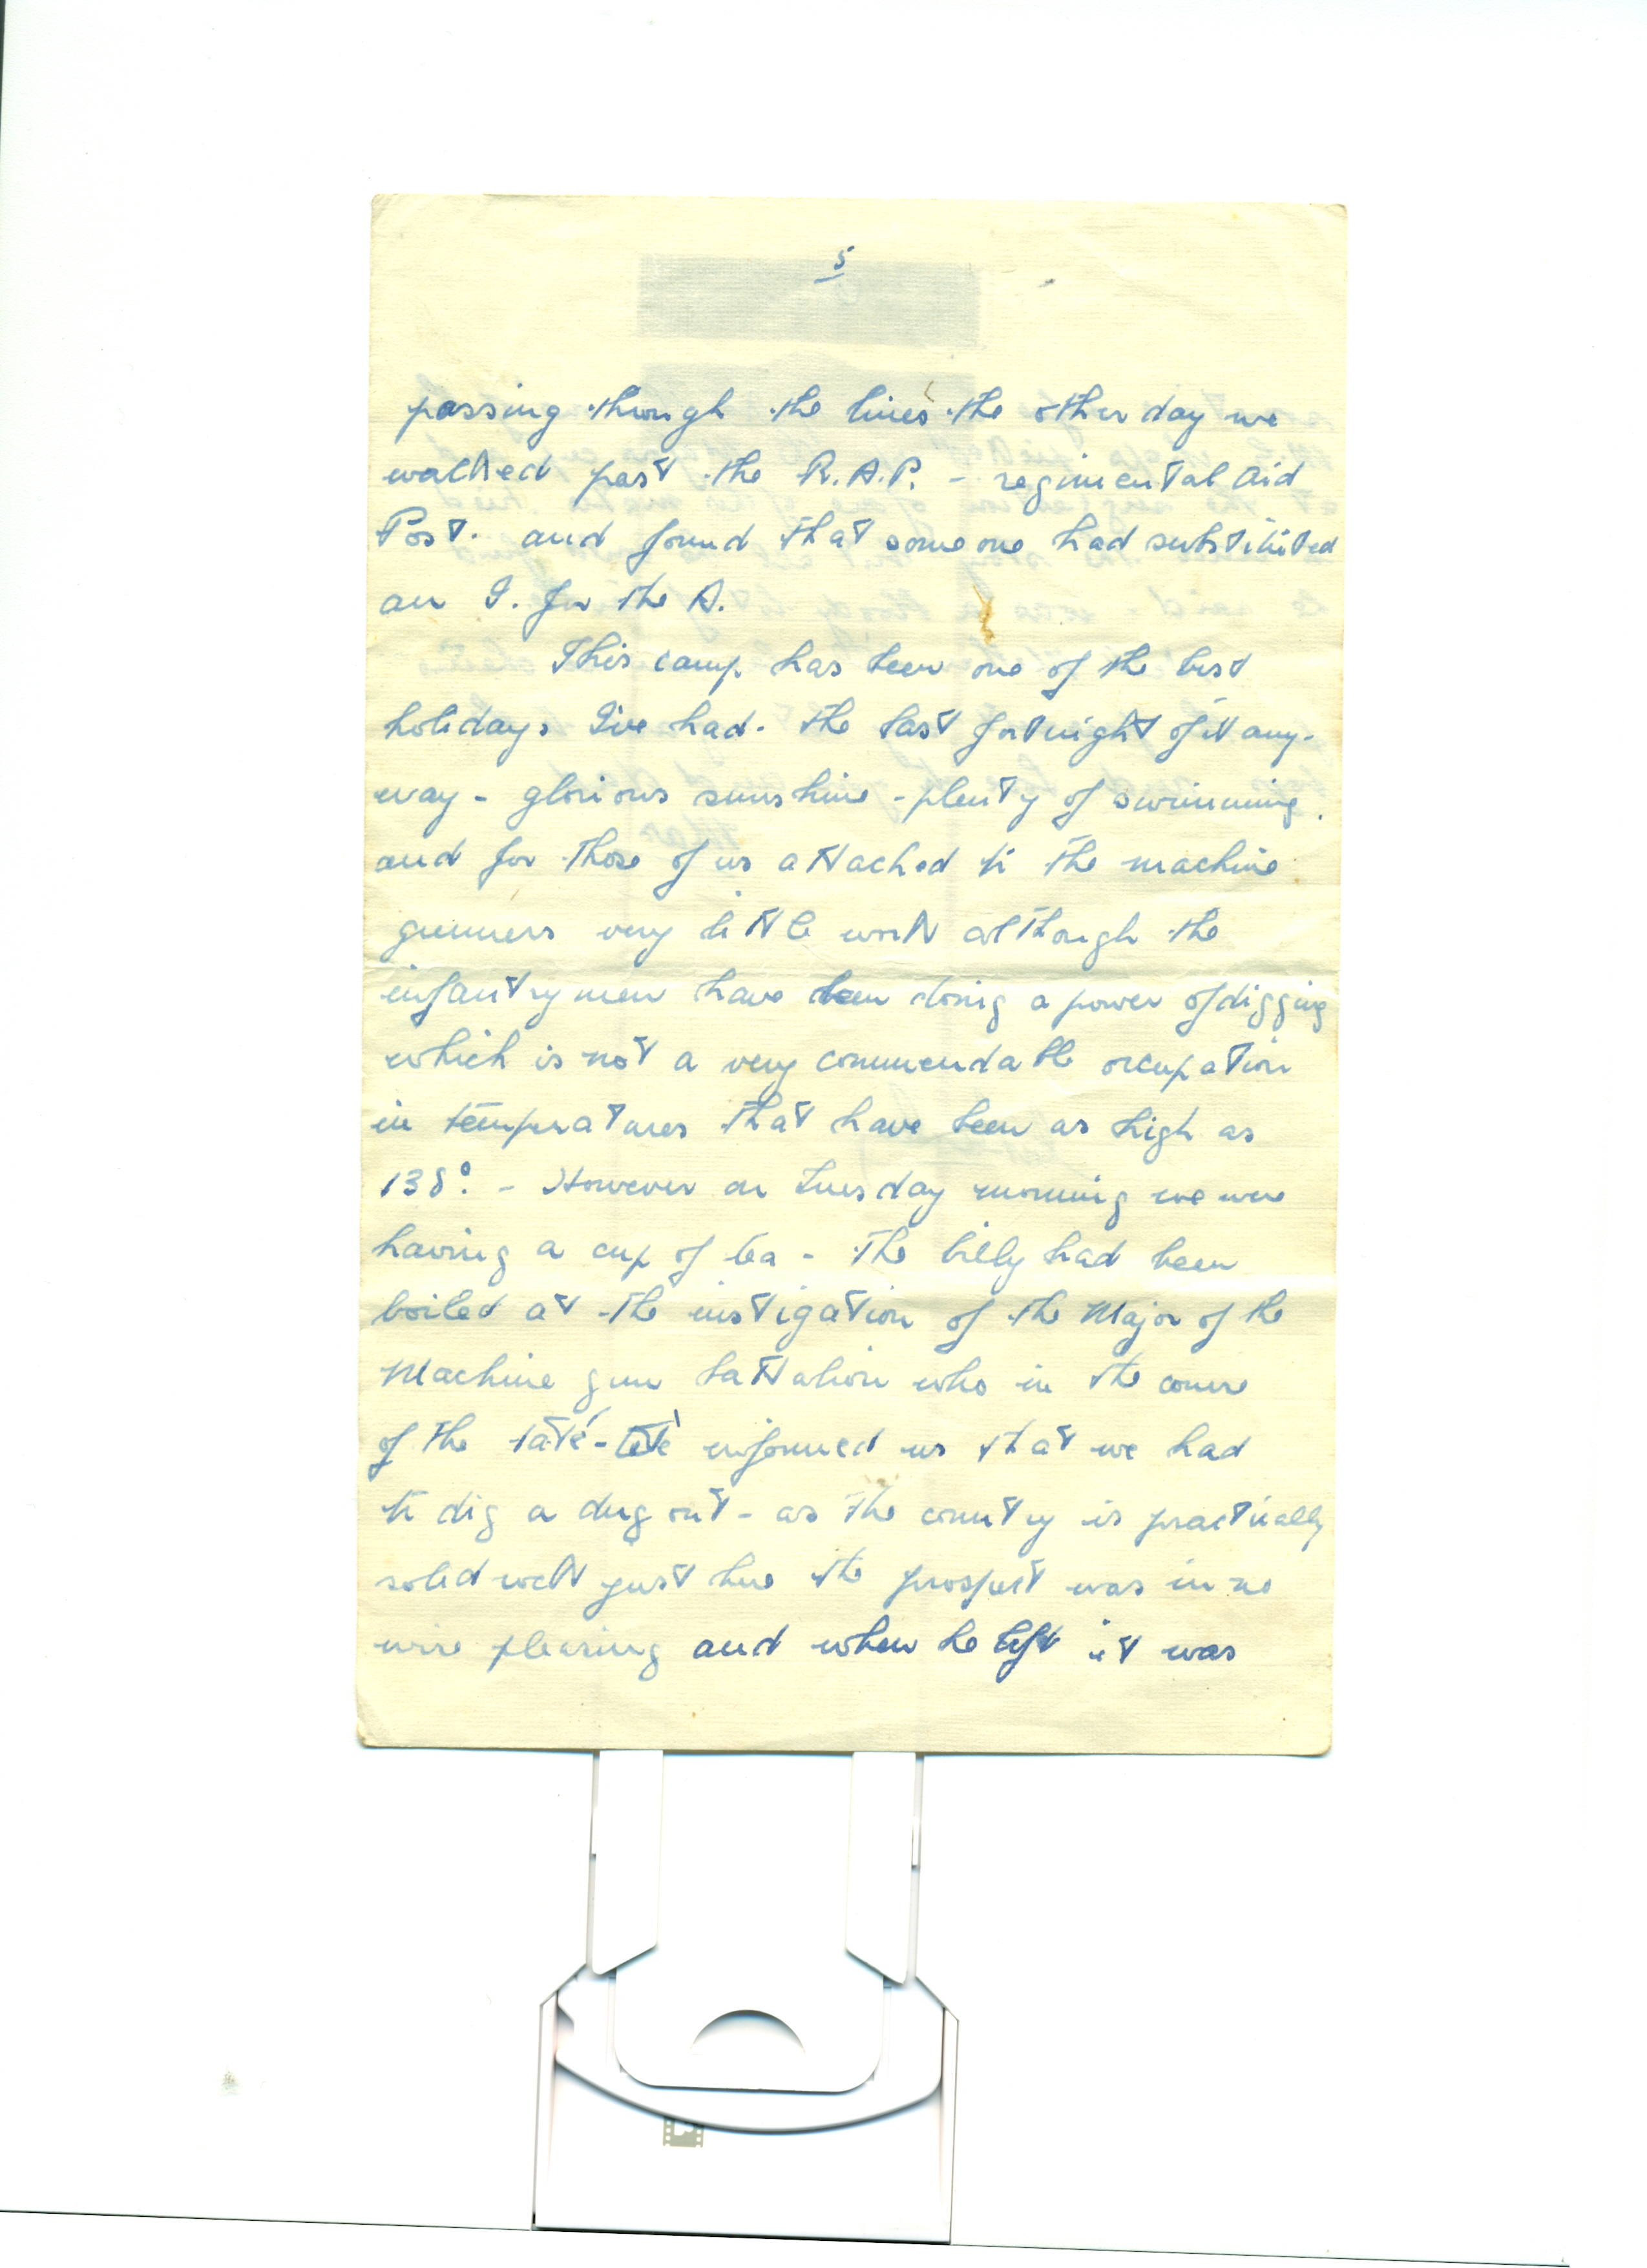 5
passing through the lines the other day we
walked past the R.A.P. - regimental Aid
Post. and found that someone had substituted
an I. for the A.
This camp has been one of the best
holidays I've had. the last fortnight of it any-
way - glorious sunshine - plenty of swimming.
and for those of us attached to the machine
gunners very little work although the
infantrymen have been doing a power of digging
which is not a very commendable occupation
in temperatures that have been as high as
138°. - However on Tuesday morning we were
having a cup of tea - the billy had been
boiled at the instigation of the Major of the
Machine gun battalion who in the course
of the tàté-tèté informed us that we had
to dig a dug out - as the country is practically
solid rock just here the prospect was in no
wise pleasing and when he left it was